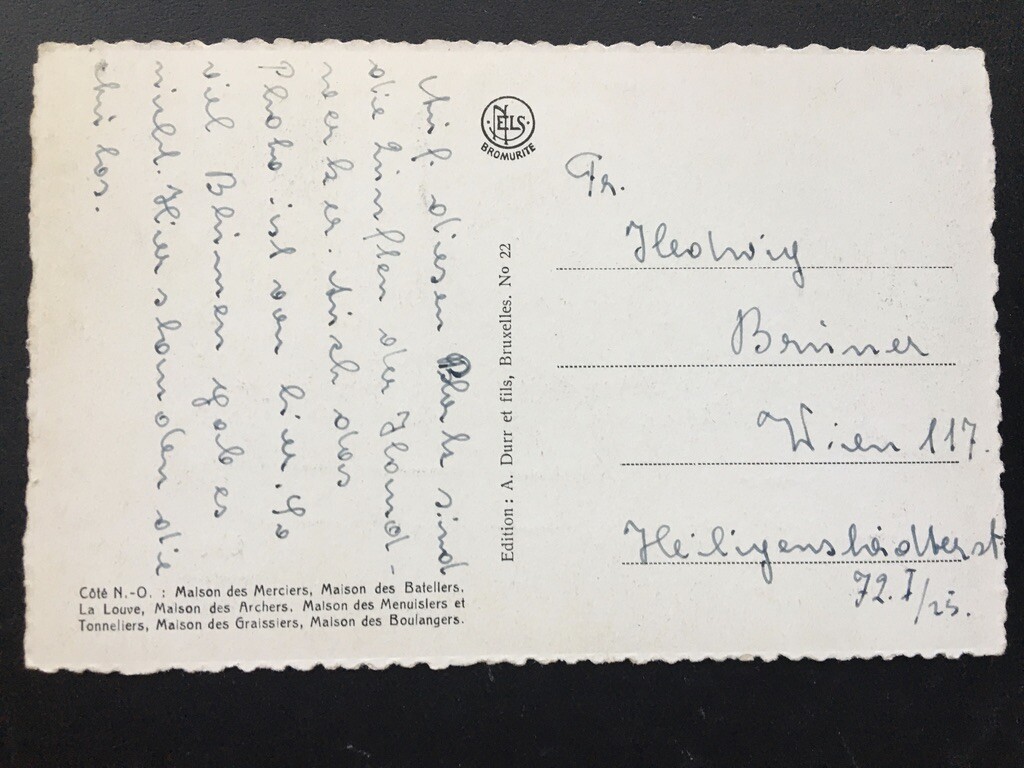 Auf diesen Platz sind
die Zünften der Hand-
werker. Auch das
Photo ist von hier. So
viel Blumen gab es
nicht. Hier standen die
Autos.
Côté N.-O. : Maison des Merciers, Maison des Bateliers,
La Louve, Maison des Archers, Maison des Menuisiers et
Tonneliers, Maison des Graissiers, Maison des Boulangers.
NELS
BROMURITE
Edition : A. Durr et fils, Bruxelles. No 22
Fr.
Hedwig
Bruner
Wien 117.
Heiligenstädterst
72.I/25.